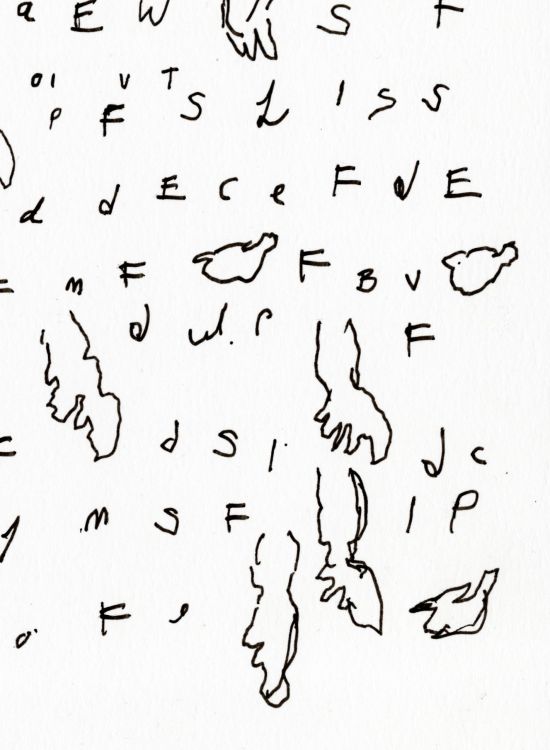 a E W S F
o i v T
P F S L I S S
d d E C e F d E
m F F B v
d w. P F
c d S I d c
m S F I P
o. F e